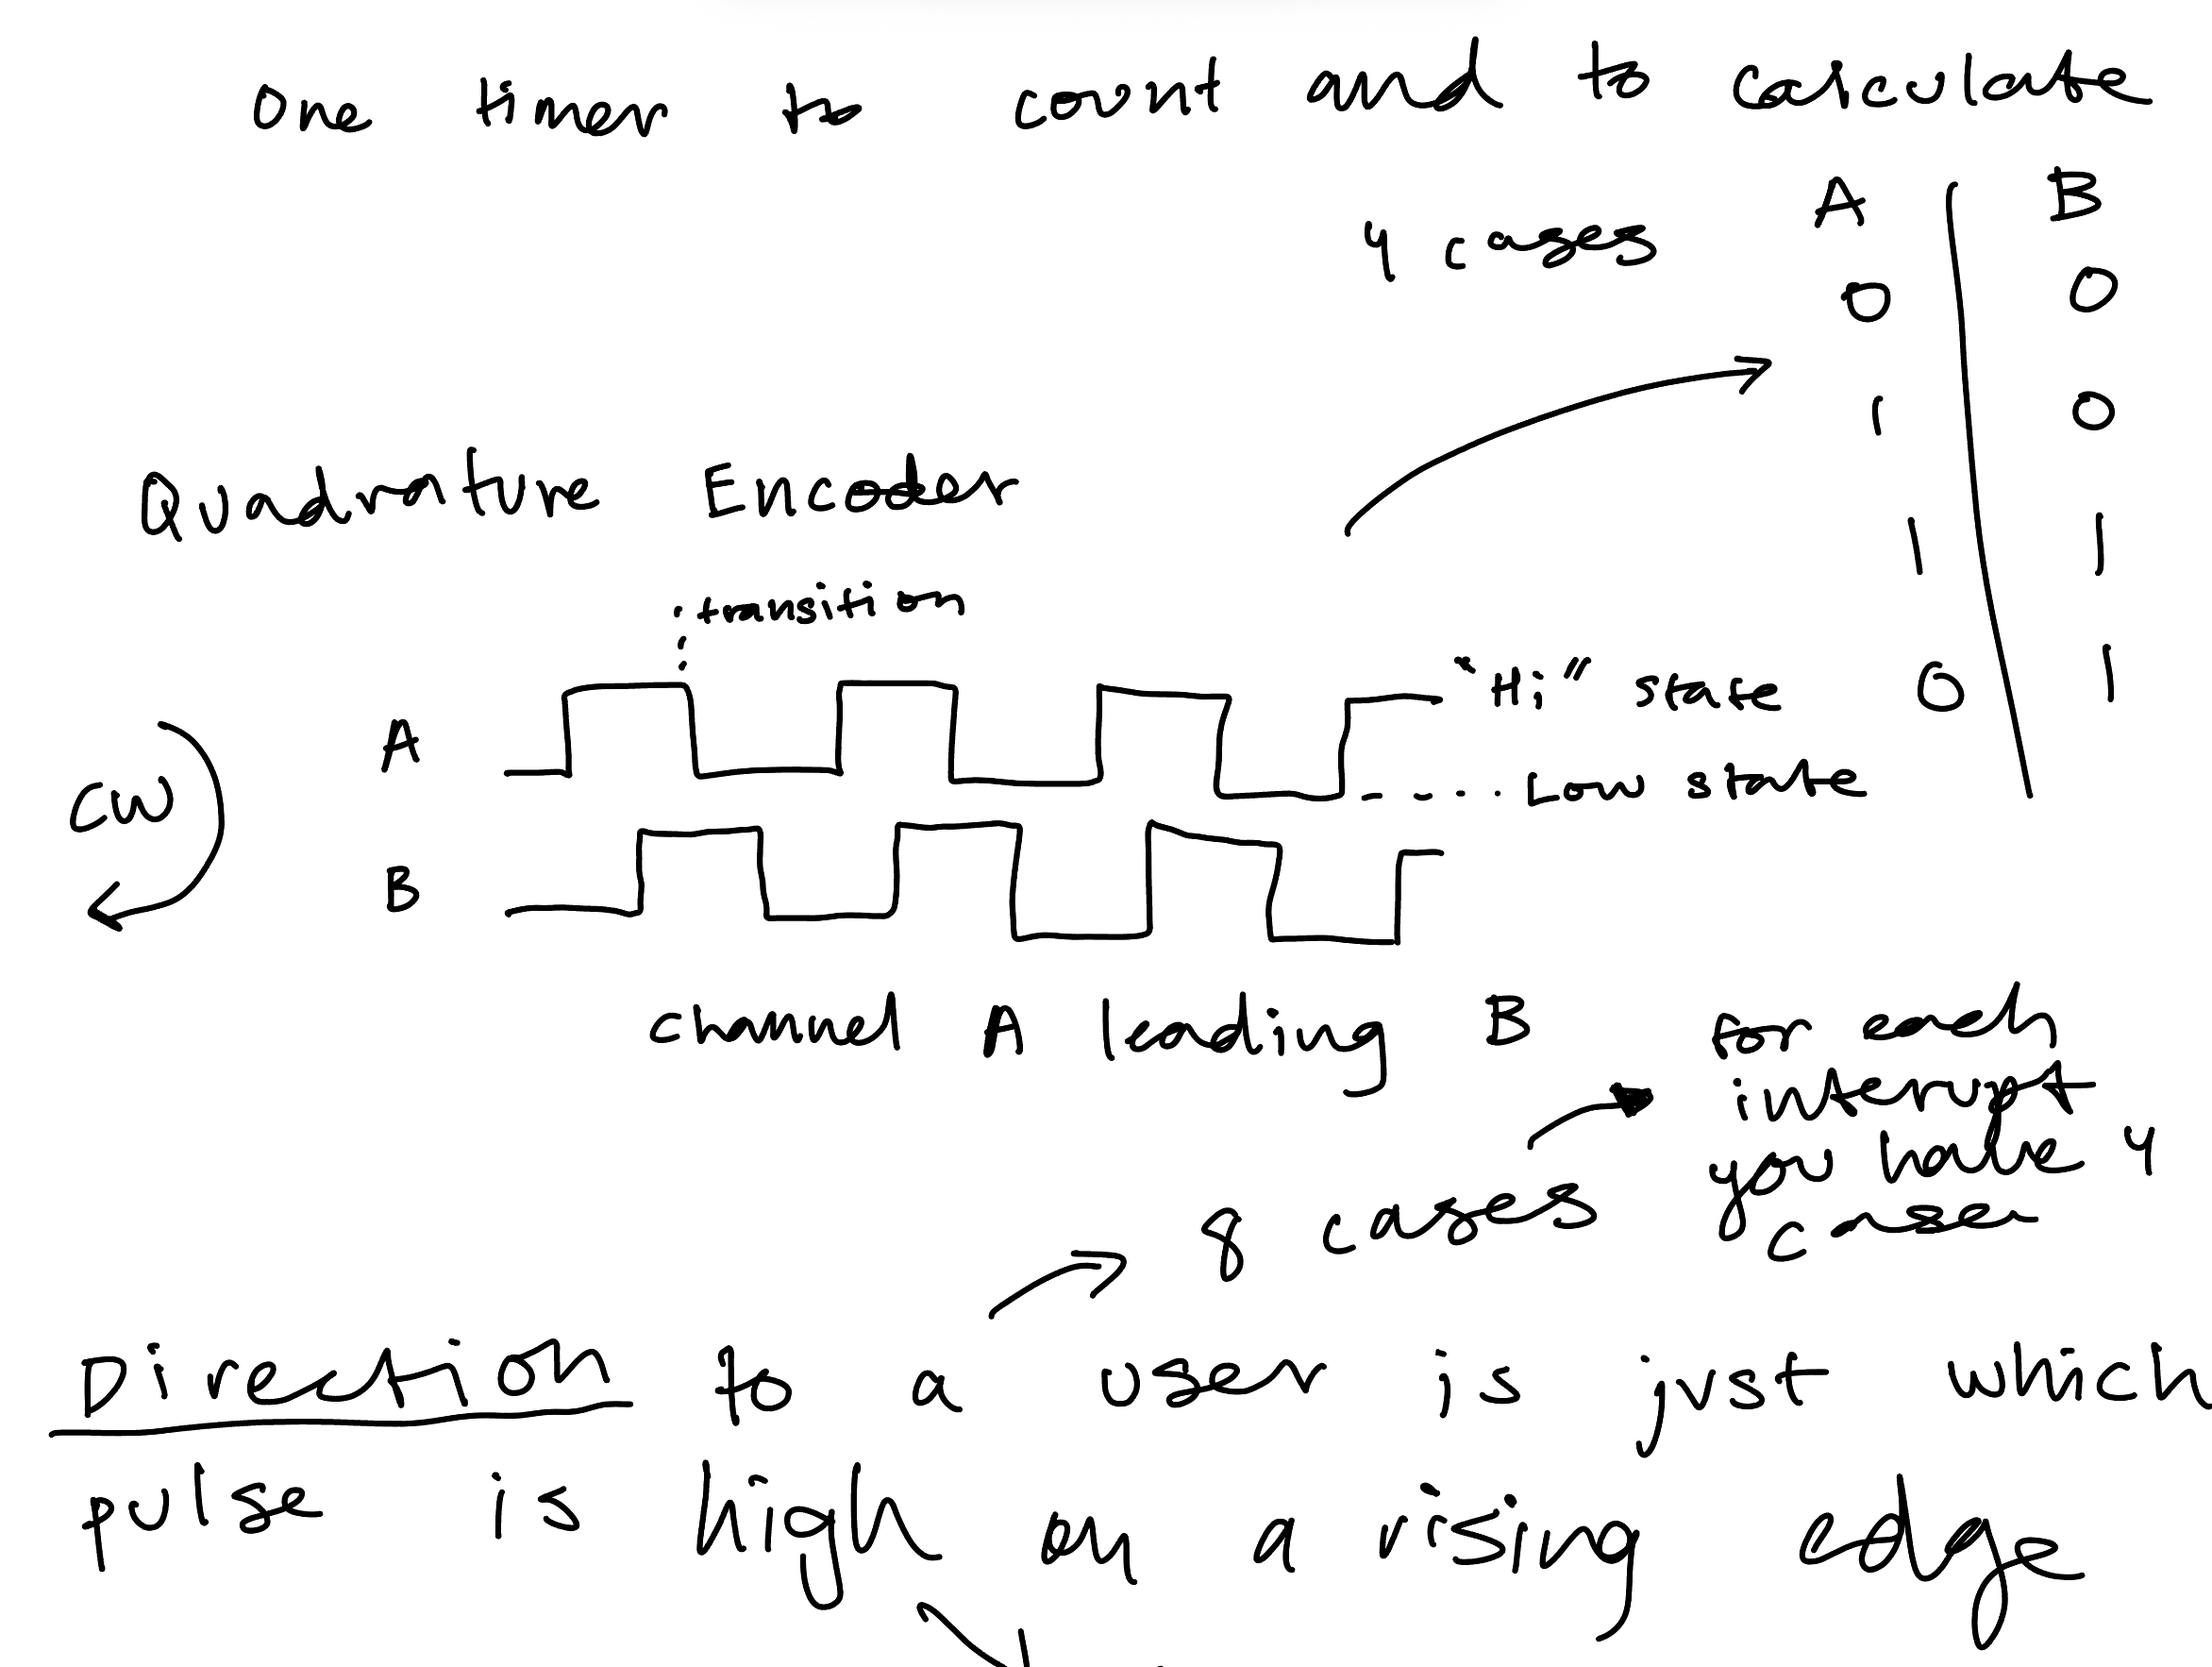 One timer to count and to calculate
A B
4 cases
0 0
1 0
Quadrature Encoder
1 1
transition
"Hi" state
0 1
A
CW
Low state
B
channel A leading B
for each
interupt
you have 4
cases
8 cases
Direction to a user is just which
pulse is high on a rising edge